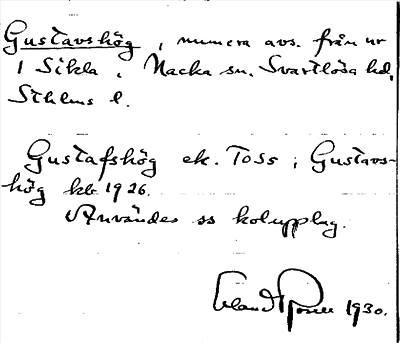 Gustavshög, numera avs. från nr
1 Sikla, Nacka sn. Svartlösa hd,
Sthlms l.
Gustafshög ek. Toss; Gustavs-
hög kb 1926.
Användes ss kolupplag.
Erland Rosell 1930.